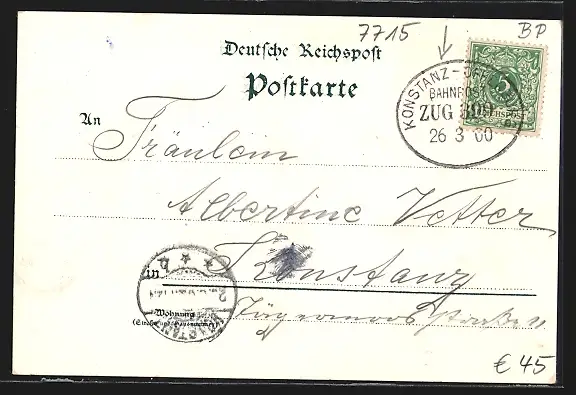 7715 BP
Deutsche Reichspost
Postkarte
KONSTANZ - OFFENBURG
BAHNPOST
ZUG
26 3 00
5
REICHSPOST
An Fräulein
Albertine Vetter
in Konstanz
Wohnung
(Straße und Hausnummer)
€ 45